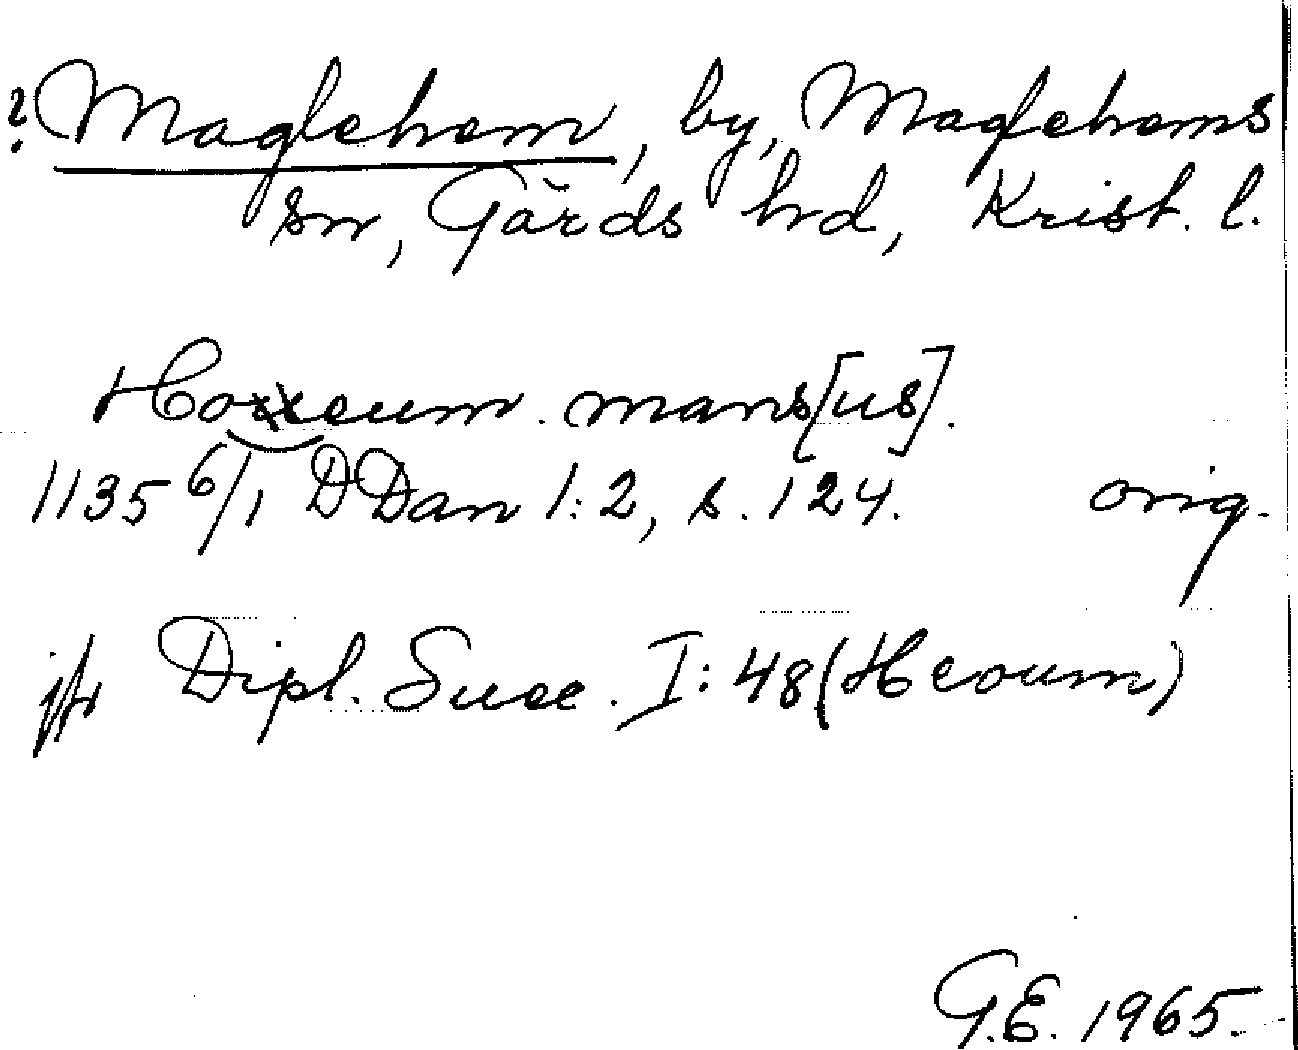 ? Maglehem, by, Maglehems
sn, Gärds hd, Krist. l.
Hoxxeum. mans[us].
1135 6/1 DDan 1:2, s. 124. orig.
jfr Dipl. Suec. I: 48 (Heoum)
G.E. 1965.